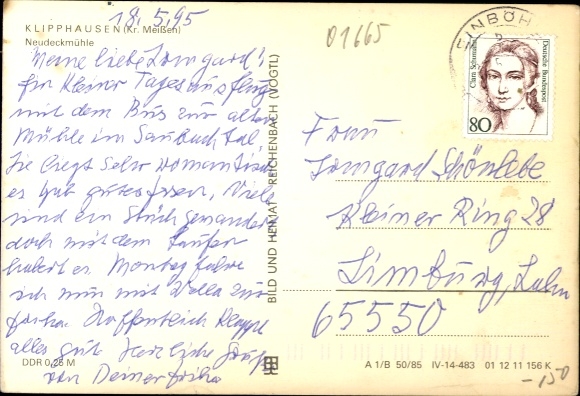 18.5.95
01665
KLIPPHAUSEN (Kr. Meißen)
Neudeckmühle
Meine liebe Irmgard!
Ein kleiner Tagesausflug
mit dem Bus zur alten
Mühle im Saubachtal,
Sie liegt sehr romantisch
es gab gutes Essen, Viele
sind ein Stück gewandert
doch mit dem Laufen
hapert es. Montag fahre
ich nun mit Wella zur
Hoffentlich klappt
alles gut. Herzliche Grüße
von Deiner
DDR 0,25 M
BILD UND HEIMAT REICHENBACH (VOGTL)
INBÖH
Clara Schumann
Deutsche Bundespost
80
Frau
Irmgard Schönlebe
Kleiner Ring 28
Limburg, Lahn
65550
A 1/B 50/85 IV-14-483 01 12 11 156 K
-150